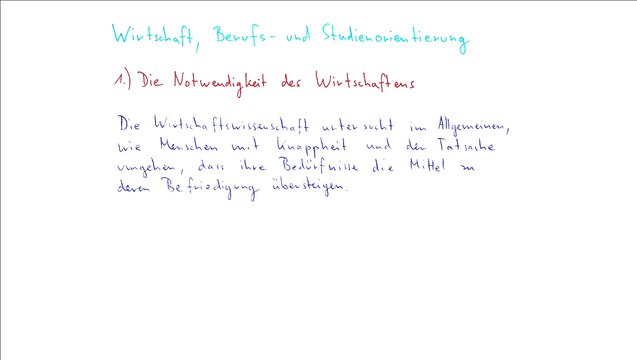 Wirtschaft, Berufs- und Studienorientierung
1.) Die Notwendigkeit des Wirtschaftens
Die Wirtschaftswissenschaft untersucht im Allgemeinen,
wie Menschen mit Knappheit und der Tatsache
umgehen, dass ihre Bedürfnisse die Mittel zu
deren Befriedigung übersteigen.